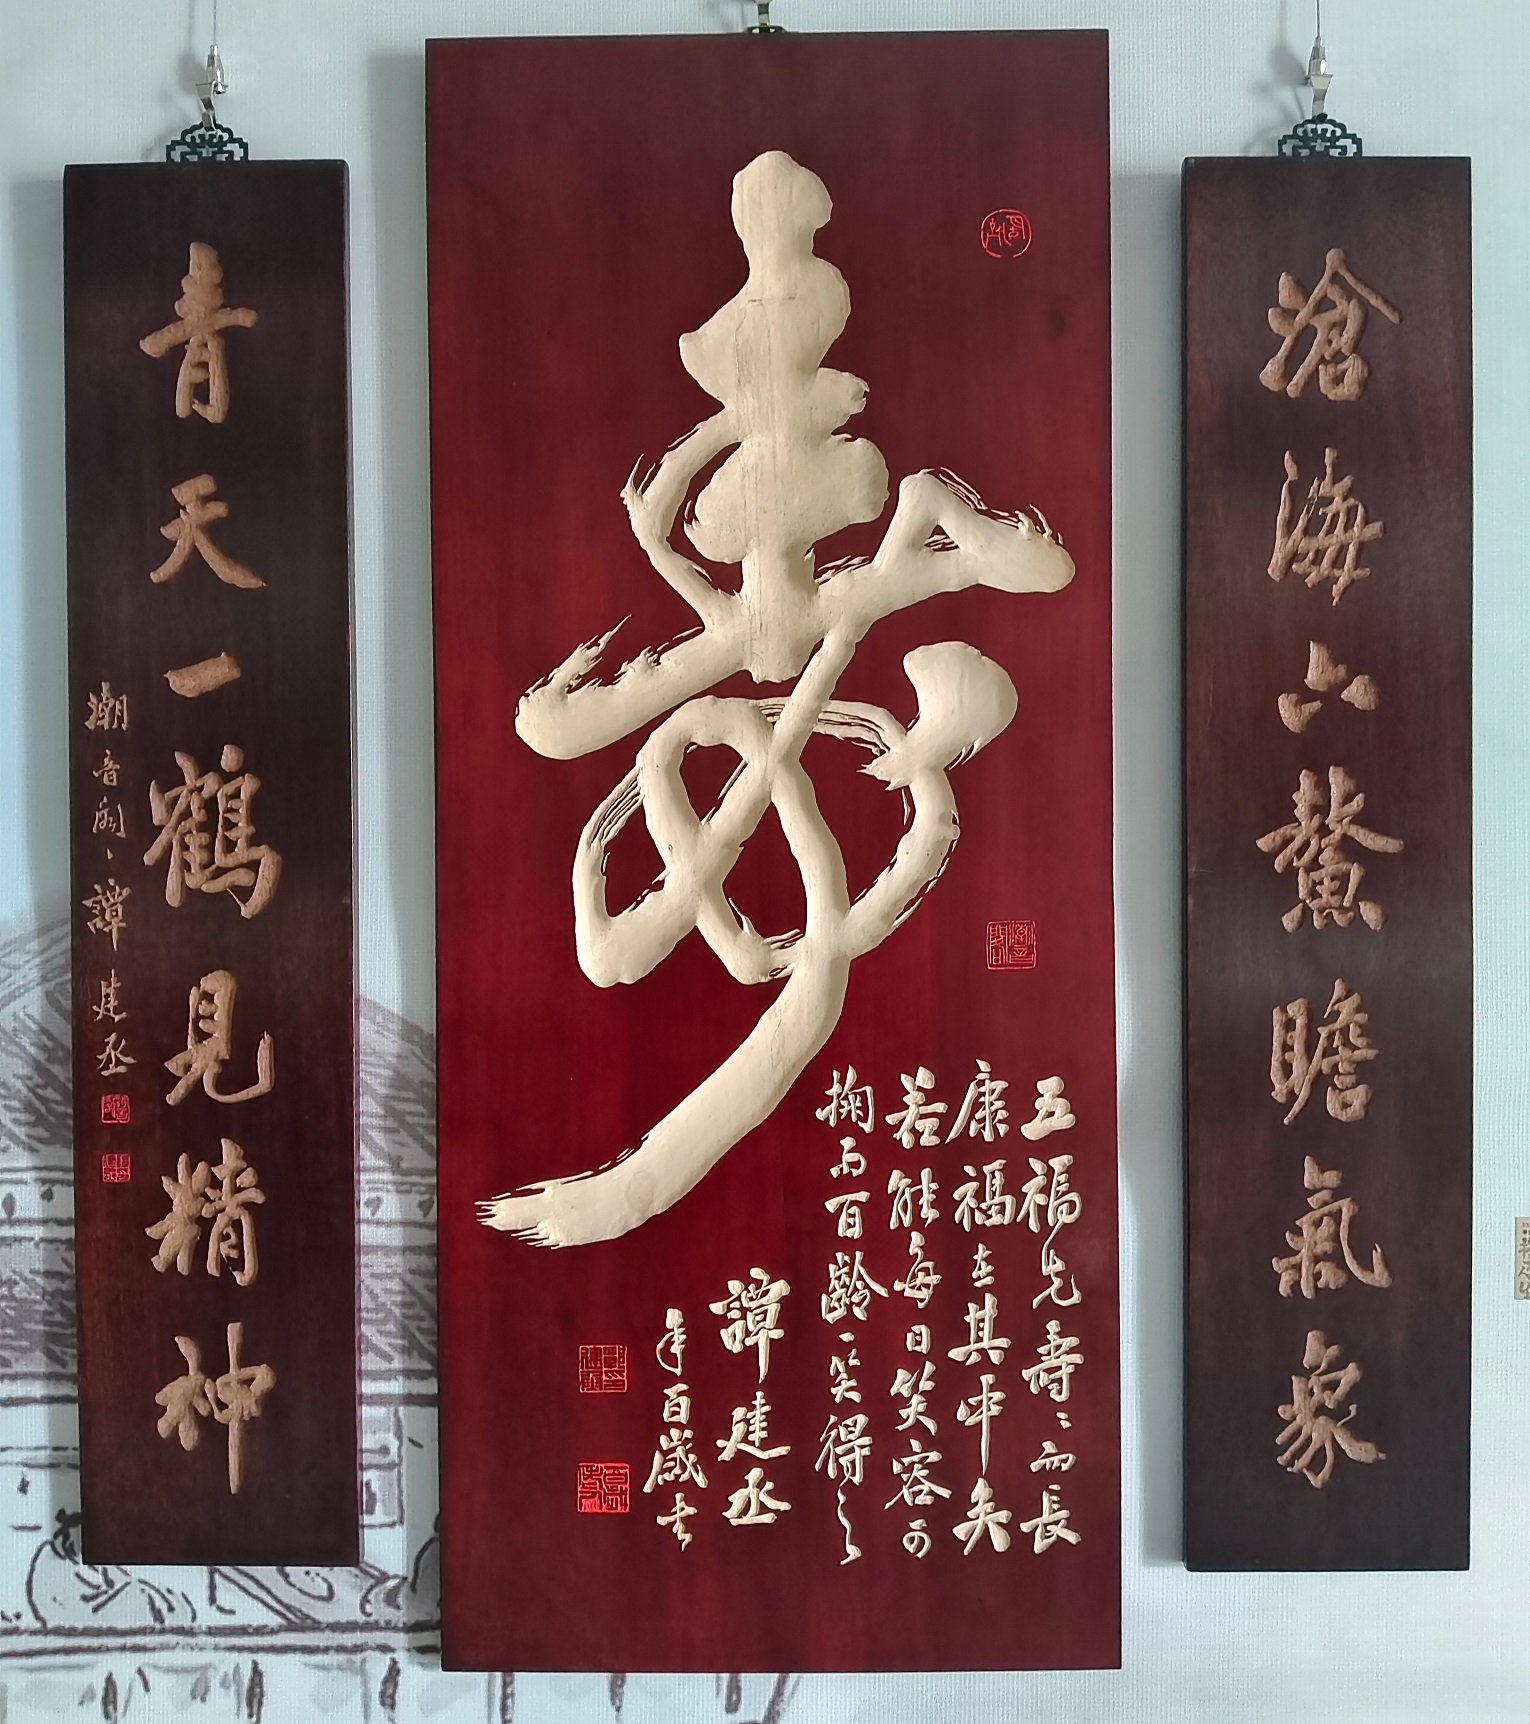 滄海六鰲瞻氣象
壽
五福先壽壽而長
康福在其中矣
若能每日笑容可
掬而百齡一笑得之
譚建丞
年百歲書
青天一鶴見精神
潮音閣譚建丞